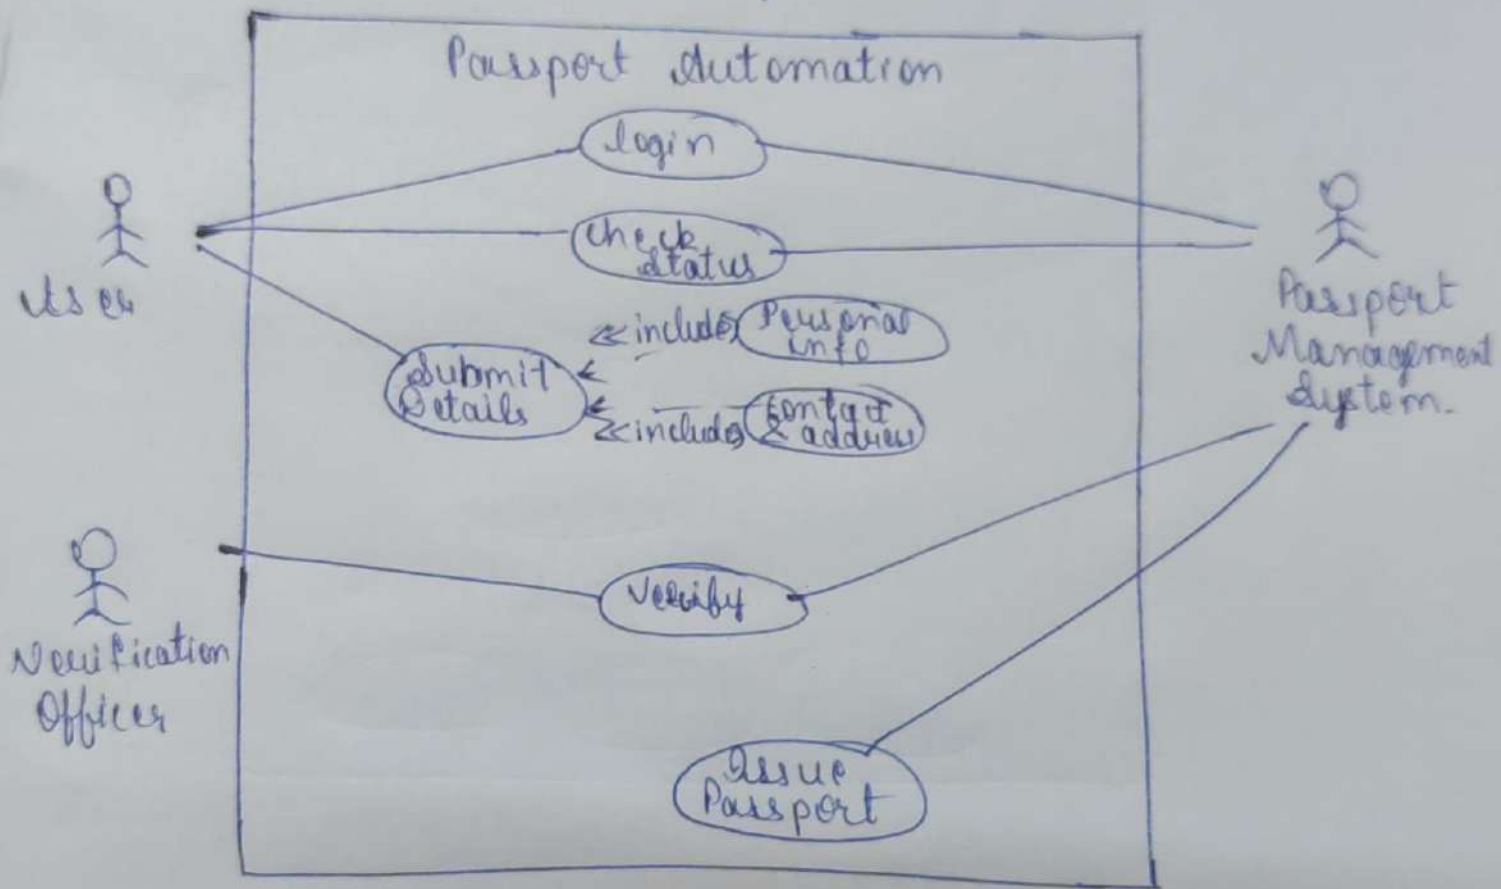 Passport Automation
login
User
Check
Status
<<includes
Personal
info
Submit
Details
<<includes
Contact
& address
Passport
Management
System.
Verification
Officer
Verify
Issue
Passport